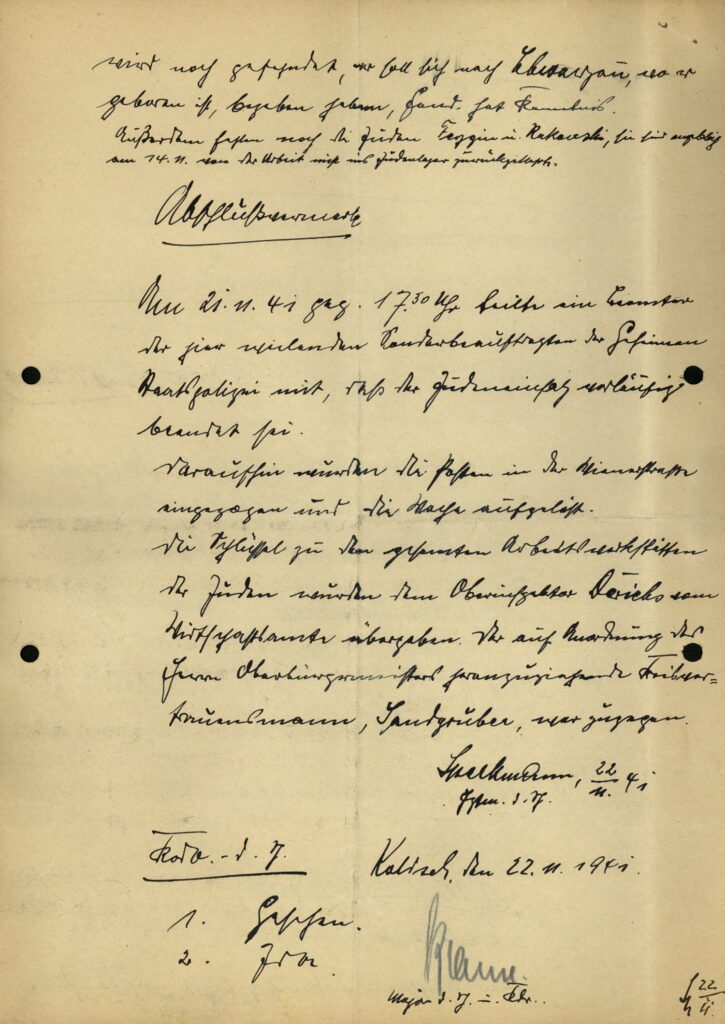 wird noch gefahndet, er soll sich nach wo er
geboren ist, begeben haben, Fand. hat
Außerdem fehlen noch die Juden u. Rakowski, die sind angeblich
am 14.11. von der Arbeit nicht ins Judenlager zurückgekehrt.
Abschlußvermerk
Am 21.11.41 geg. 17.30 Uhr teilte ein Beamter
der hier weilenden Sonderbeauftragten der Geheimen
Staatspolizei mit, daß der Judeneinsatz vorläufig
beendet sei.
Daraufhin wurden die Posten in der Wienerstrasse
eingezogen und die Wache aufgelöst.
Die Schlüssel zu den gesamten Arbeitswerkstätten
der Juden wurden dem Oberinspektor Derichs vom
Wirtschaftsamte übergeben. Der auf Anordnung des
Herrn Oberbürgermeisters heranzuziehende
trauensmann, Sandgruber, war zugegen.
22/11. 41
d. Sch.
Kdo. - d. Sch.
Kalisch, den 22.11.1941.
1. Gesehen.
2.
Major d. Sch. u. Kdr.
22/11